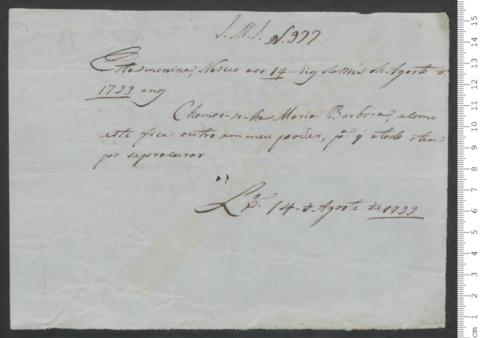 J.M.J. N.977
Esta menina, Nasceo aos 14 diaz do mês de Agosto d
1799 anoz
Chamarseha Maria Barbora, e como
este fica outro em meu poder, pª q atodo otem
po se procurar
Lxª. 14 d Agosto de 1799